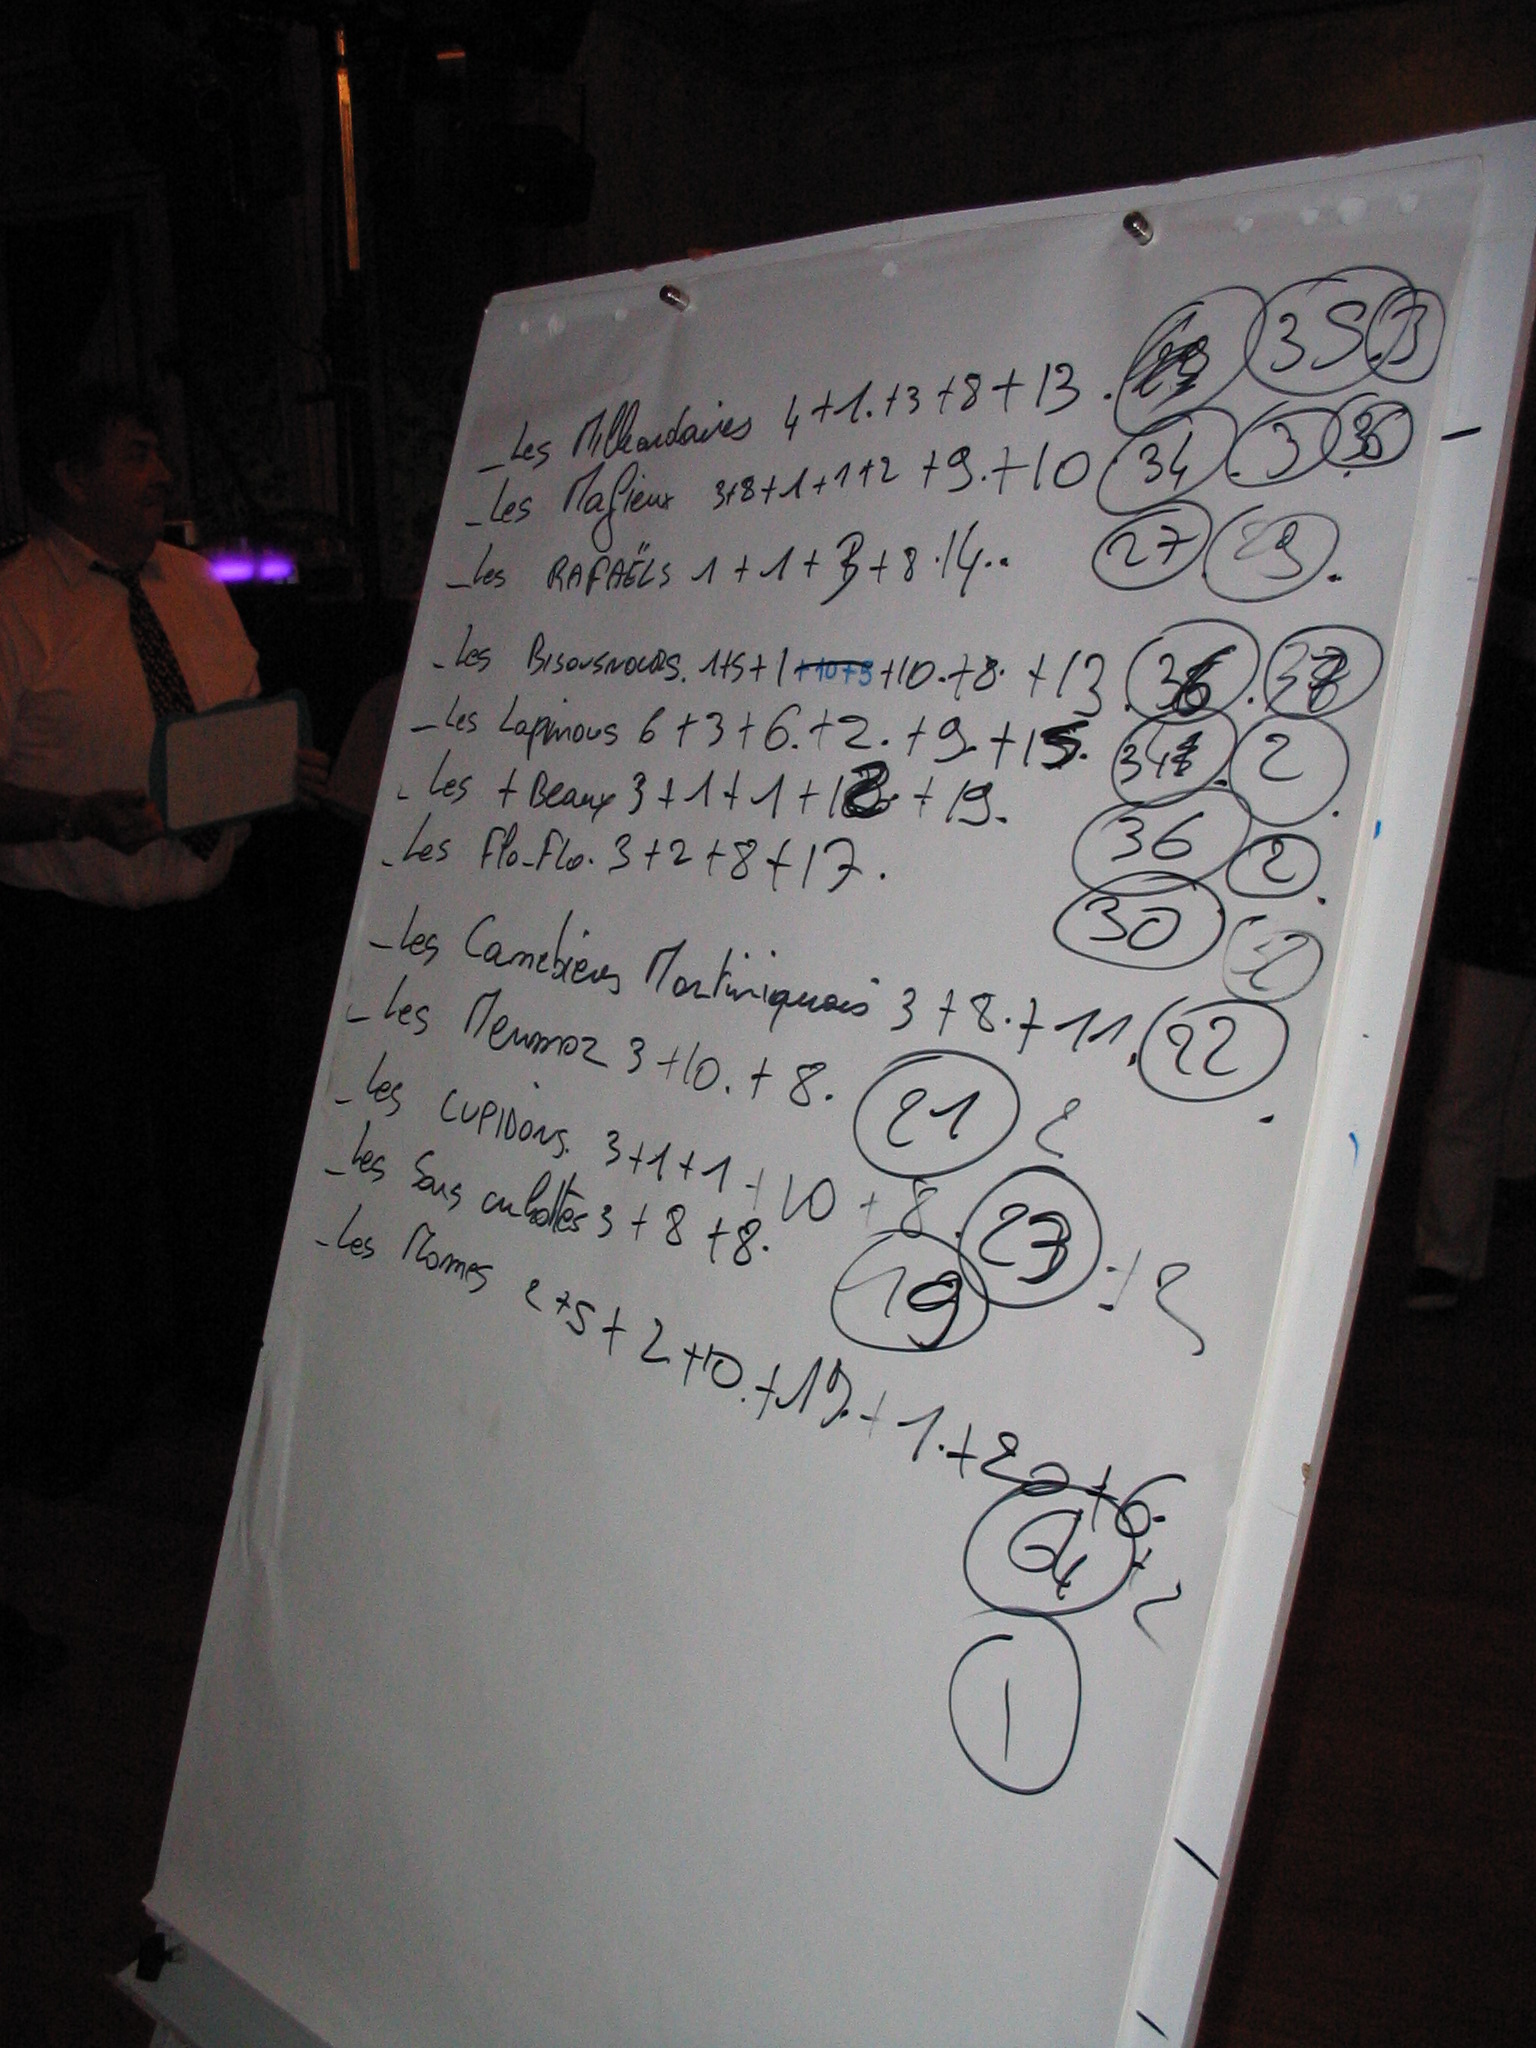 - Les Milliardaires 4+1.+3+8+13. 35 3
- Les Mafieux 3+8+1+1+2+9.+10 34 3 36
- Les RAFAËLS 1+1+3+8.14.. 27 29
- Les Bisounours. 1+5+1+10+5+10.+8.+13. 36 38
- Les Lapinous 6+3+6.+2.+9.+15. 34 2
- Les + Beaux 3+1+1+12.+19. 36 2
- Les Flo-Flo. 3+2+8+17. 30 32
- Les Camebières Martiniquais 3+8.+11. 22
- Les Mermoz 3+10.+8. 21 2
- Les CUPIDONS. 3+1+1+10+8. 23 +2
- Les Sans culottes 3+8+8. 19
- Les Momes 2+5+2+10.+19.+1.+20+6. 64 +2
1